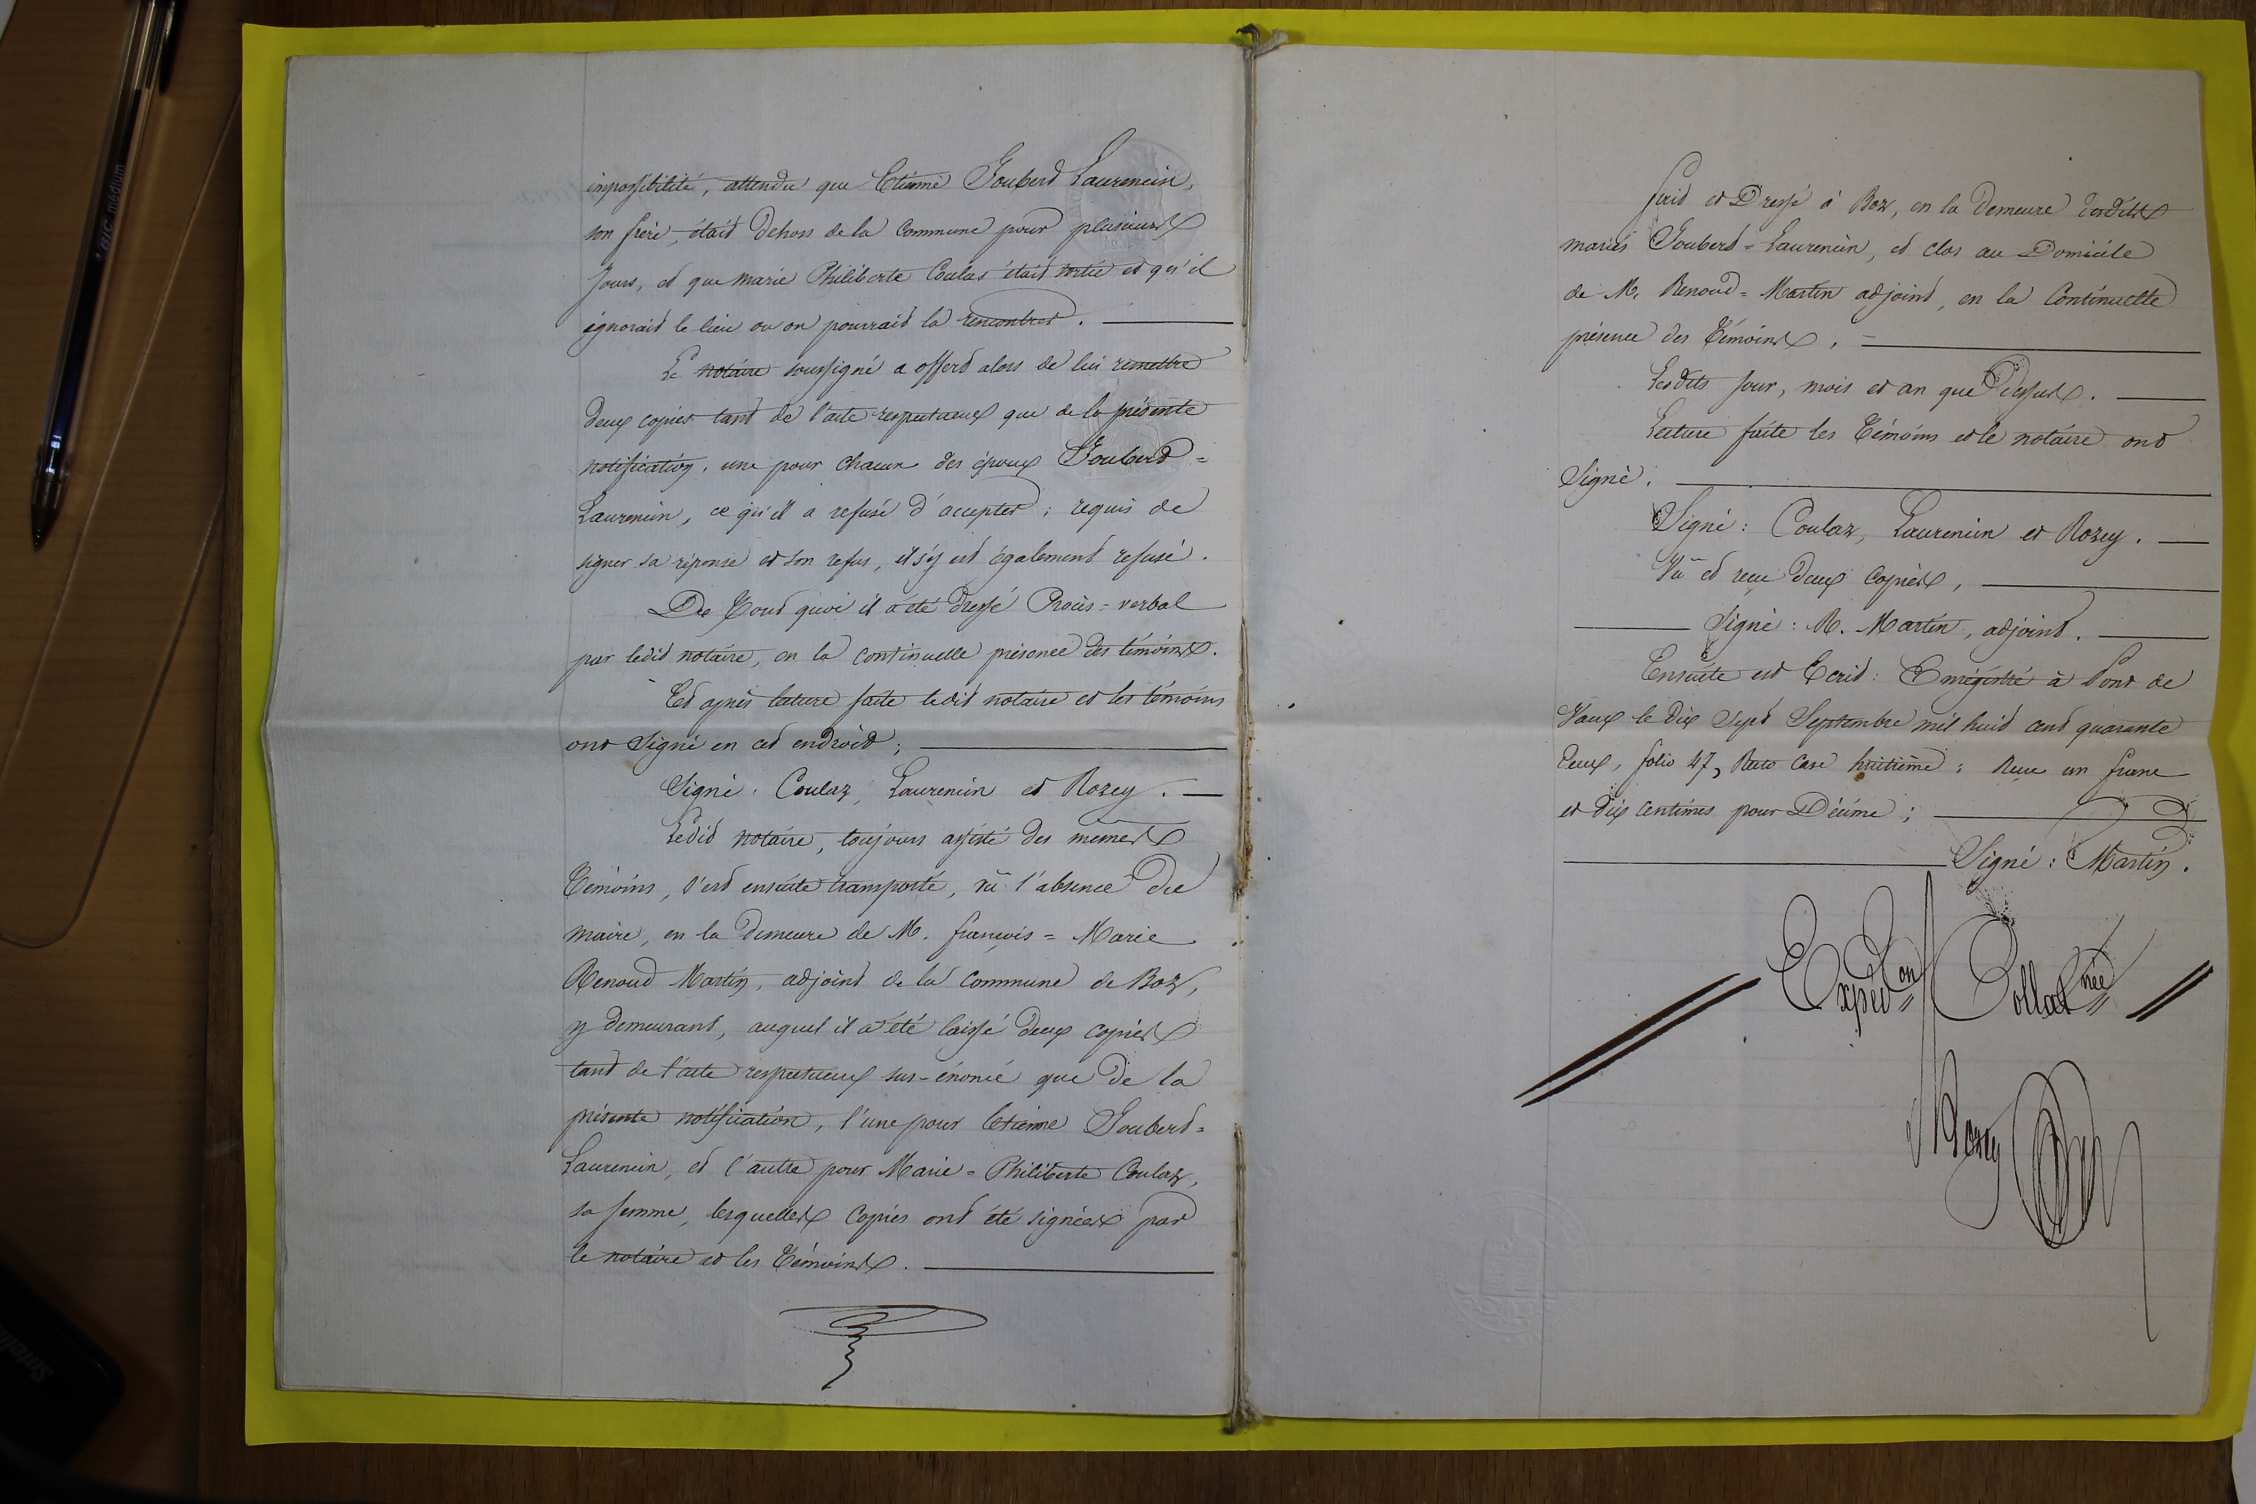 impossibilité, attendu que Etienne Joubert Laurencin,
son frère, était dehors de la Commune pour plusieurs
Jours, et que marie Philiberte Coulas était sortie et qu'il
ignorait le lieu ou on pourrait la rencontrer.
Le notaire soussigné a offert alors de lui remettre
deux copies tant de l'acte respectueux que de la présente
notification, une pour chacun des époux Joubert =
Laurencin, ce qu'il a refusé d'accepter ; requis de
signer sa réponse et son refus, il s'y est également refusé.
De Tout quoi il a été dressé Procès = verbal
par ledit notaire, en la continuelle présence des témoins.
Et après lecture faite ledit notaire et les témoins
ont Signé en cet endroit ;
Signé : Coulaz, Laurencin et Rozey.
Ledit notaire, toujours assisté des mêmes
Témoins, s'est ensuite transporté, vû l'absence du
maire, en la demeure de M. françois = Marie
Renoud Martin, adjoint de la commune de Boz,
y demeurant, auquel il a été laissé deux copies
tant de l'acte respectueux sus-énoncé que de la
présente notification, l'une pour Etienne Joubert =
Laurencin, et l'autre pour Marie = Philiberte Coulaz,
sa femme, lesquelles Copies ont été signées par
le notaire et les Témoins.
fait et Dressé à Boz, en la demeure desdits
mariés Joubert = Laurencin, et clos au Domicile
de M. Renoud = Martin adjoint, en la Continuelle
présence des Témoins.
Lesdits Jour, mois et an que Dessus.
Lecture faite les Témoins et le notaire ont
Signé.
Signé : Coulaz, Laurencin et Rozey.
Vû et reçu deux Copies,
Signé : R. Martin, adjoint.
Ensuite est Ecrit : Enregistré à Pont de
Vaux le Dix Sept Septembre mil huit cent quarante
deux, folio 47, Recto Case huitième : Reçu un franc
et dix centimes pour Décime ;
Signé : Martin.
Expéd.on Collat.née
Rozey
BIC medium